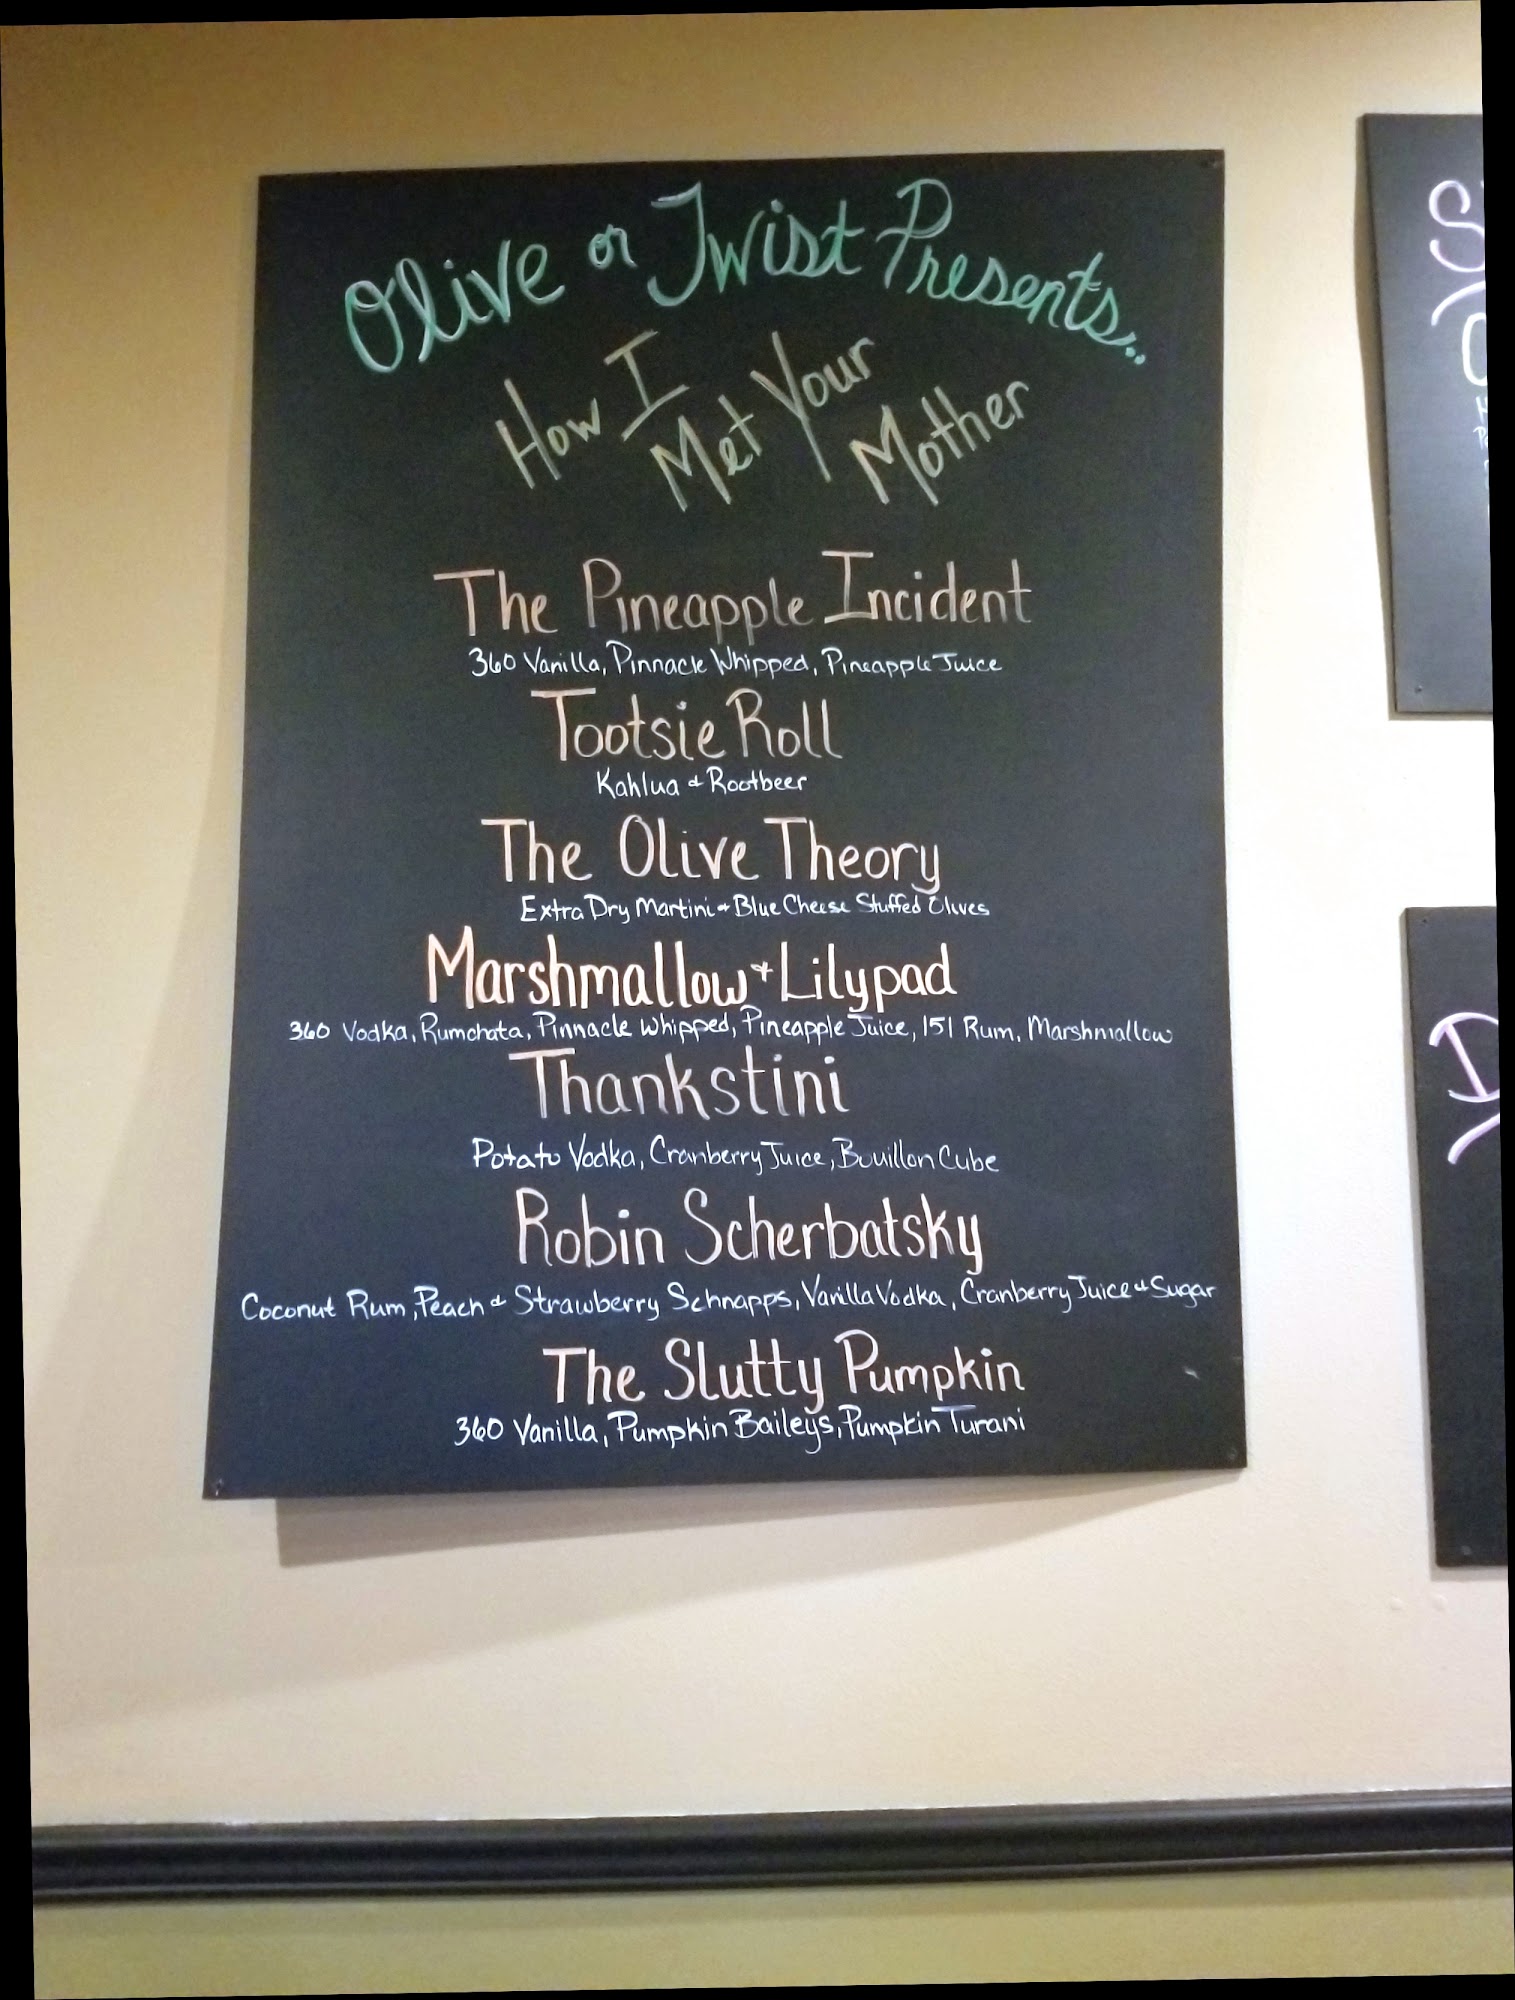 Olive or Twist Presents..
How I Met Your Mother
The Pineapple Incident
360 Vanilla, Pinnacle Whipped, Pineapple Juice
Tootsie Roll
Kahlua & Rootbeer
The Olive Theory
Extra Dry Martini & Blue Cheese Stuffed Olives
Marshmallow + Lilypad
360 Vodka, Rumchata, Pinnacle Whipped, Pineapple Juice, 151 Rum, Marshmallow
Thankstini
Potato Vodka, Cranberry Juice, Bouillon Cube
Robin Scherbatsky
Coconut Rum, Peach & Strawberry Schnapps, Vanilla Vodka, Cranberry Juice & Sugar
The Slutty Pumpkin
360 Vanilla, Pumpkin Baileys, Pumpkin Turani